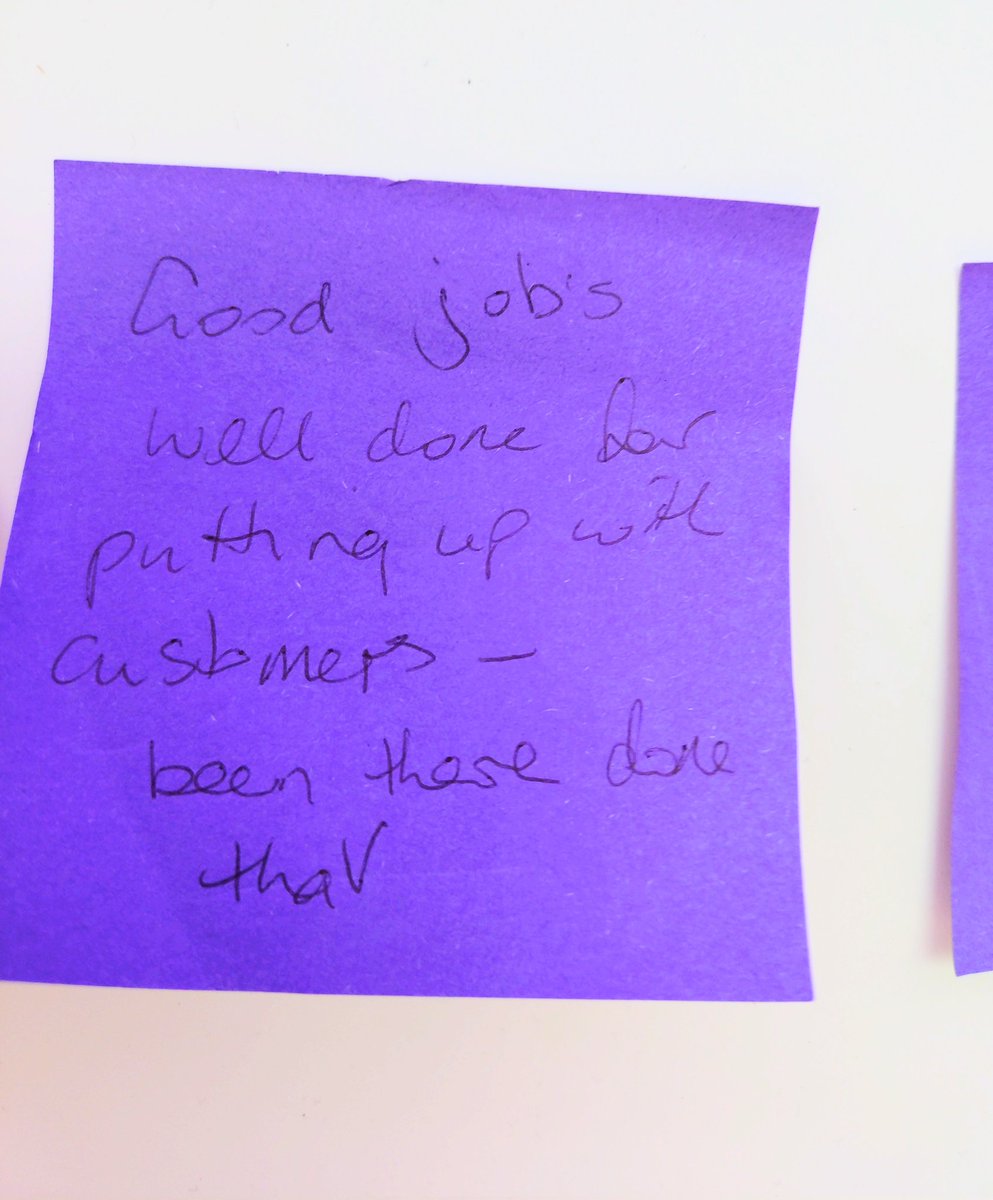 Good job's
well done for
putting up with
customers -
been there done
that